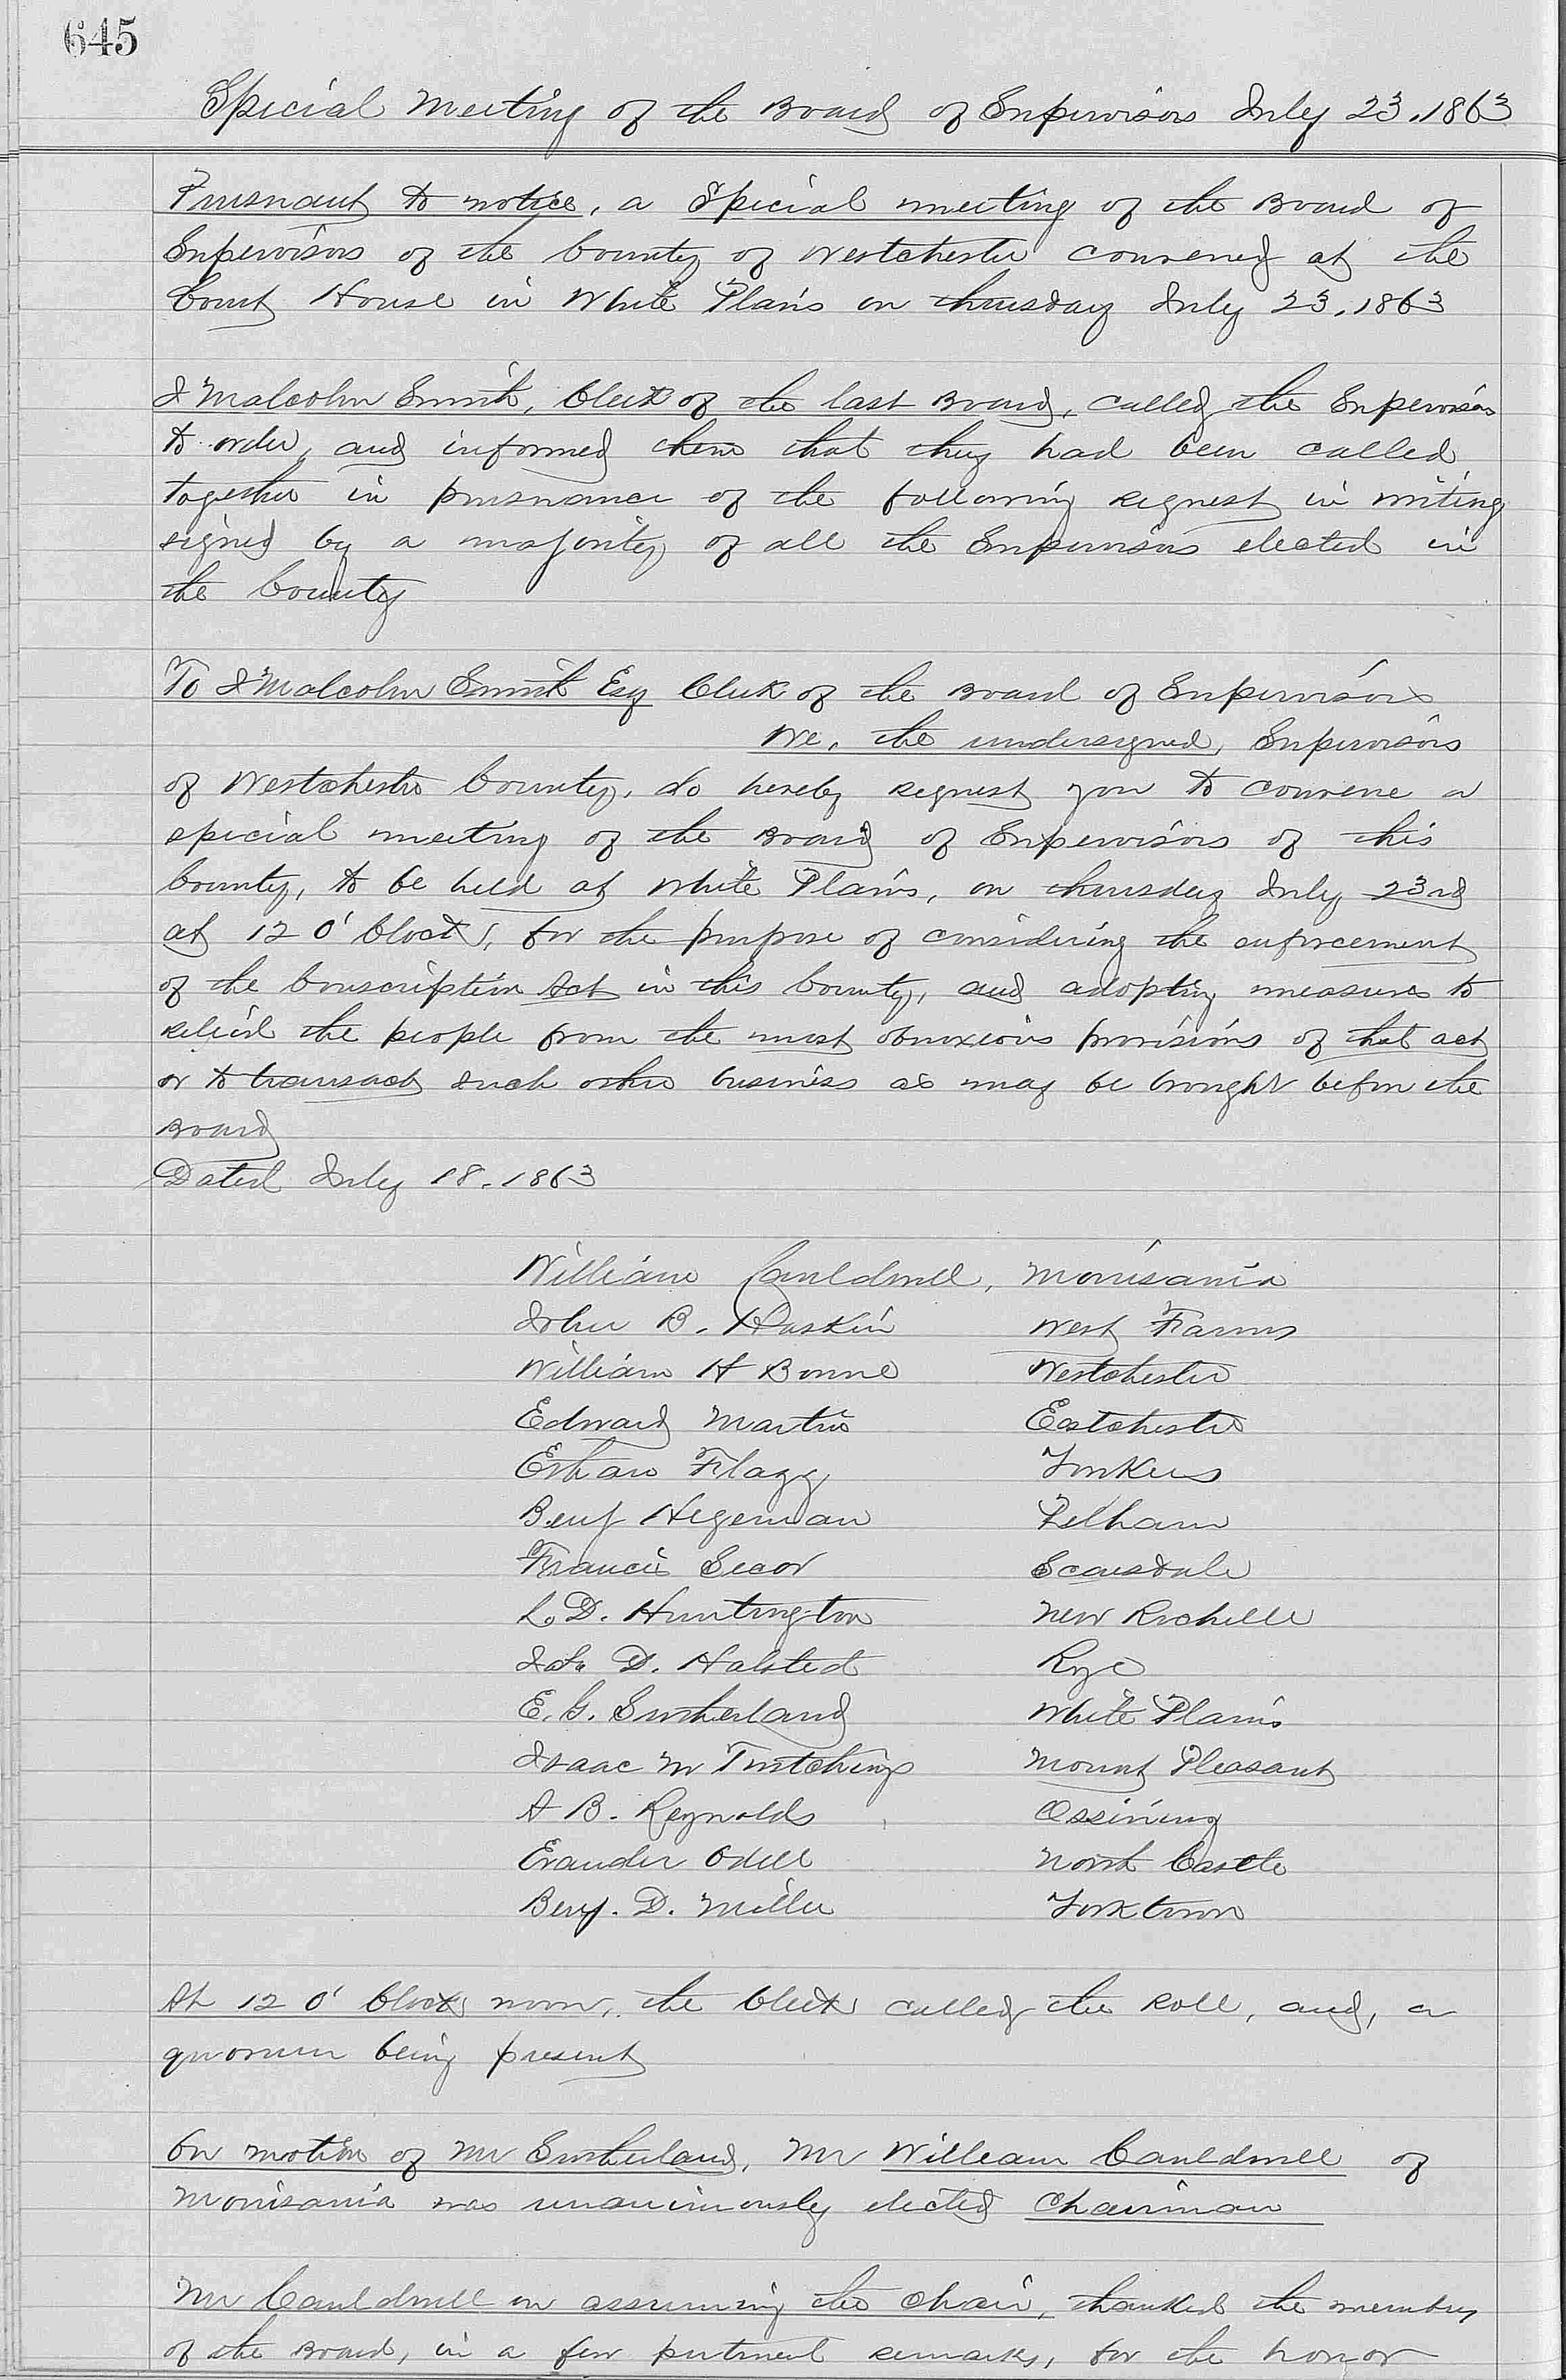 645
Special Meeting of the Board of Supervisors July 23. 1863
Pursuant to notice, a Special meeting of the Board of
Supervisors of the County of Westchester convened at the
Court House in White Plains on Thursday July 23. 1863
J Malcolm Smith, Clerk of the last Board, called the Supervisors
to order, and informed them that they had been called
together in pursuance of the following request in writing
signed by a majority of all the Supervisors elected in
the County
To J Malcolm Smith Esq Clerk of the Board of Supervisors
We, the undersigned, Supervisors
of Westchester County, do hereby request you to convene a
special meeting of the Board of Supervisors of this
County, to be held at White Plains, on Thursday July 23rd
at 12 O' Clock, for the purpose of considering the enforcement
of the Conscription Act in this County, and adopting measures to
relieve the people from the most obnoxious provisions of that act
or to transact such other business as may be brought before the
Board
Dated July 18. 1863
William Cauldwell, Morrisania
John B. Haskin West Farms
William H Bowne Westchester
Edward Martin Eastchester
Ethan Flagg Yonkers
Benj Hegeman Pelham
Francis Secor Scarsdale
L. D. Huntington New Rochelle
D. Halsted Rye
E. G. Sutherland White Plains
Isaac M Twitchings Mount Pleasant
A B. Reynolds Ossining
Evander Odell North Castle
Benj. D. Miller Yorktown
At 12 O' Clock noon, the Clerk called the Roll, and, a
quorum being present
On motion of Mr Sutherland, Mr William Cauldwell of
Morrisania was unanimously elected Chairman
Mr Cauldwell on assuming the Chair, thanked the members
of the Board, in a few pertinent remarks, for the honor